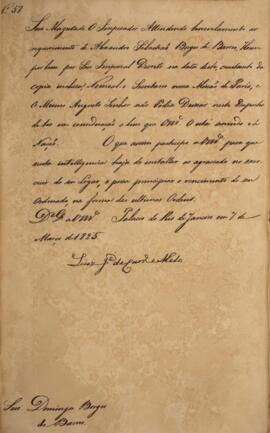 Sua Magestade O Imperador Attendendo benevolamente ao
requerimento de Alexandre Borges de Barros, Houve
por bem por Seu Imperial Decreto na data deste, constante da
copia incluza, Nomeal-o
O Mesmo Augusto Senhor não Podia Deixar neste Despacho
de ter em consideração
Nação.
O que assim participo a VM.ce para que
nesta intelligencia haja de
do seo Lugar, e para principiar o vencimento do seo
Ordenado, na forma das ultimas Ordens.
D.s G.e a VM.ce Palacio do Rio de Janeiro em 7 de
Março de 1825.
Luiz J.e de Carv.o e Mello
Snr. Domingos Borges
de Barros